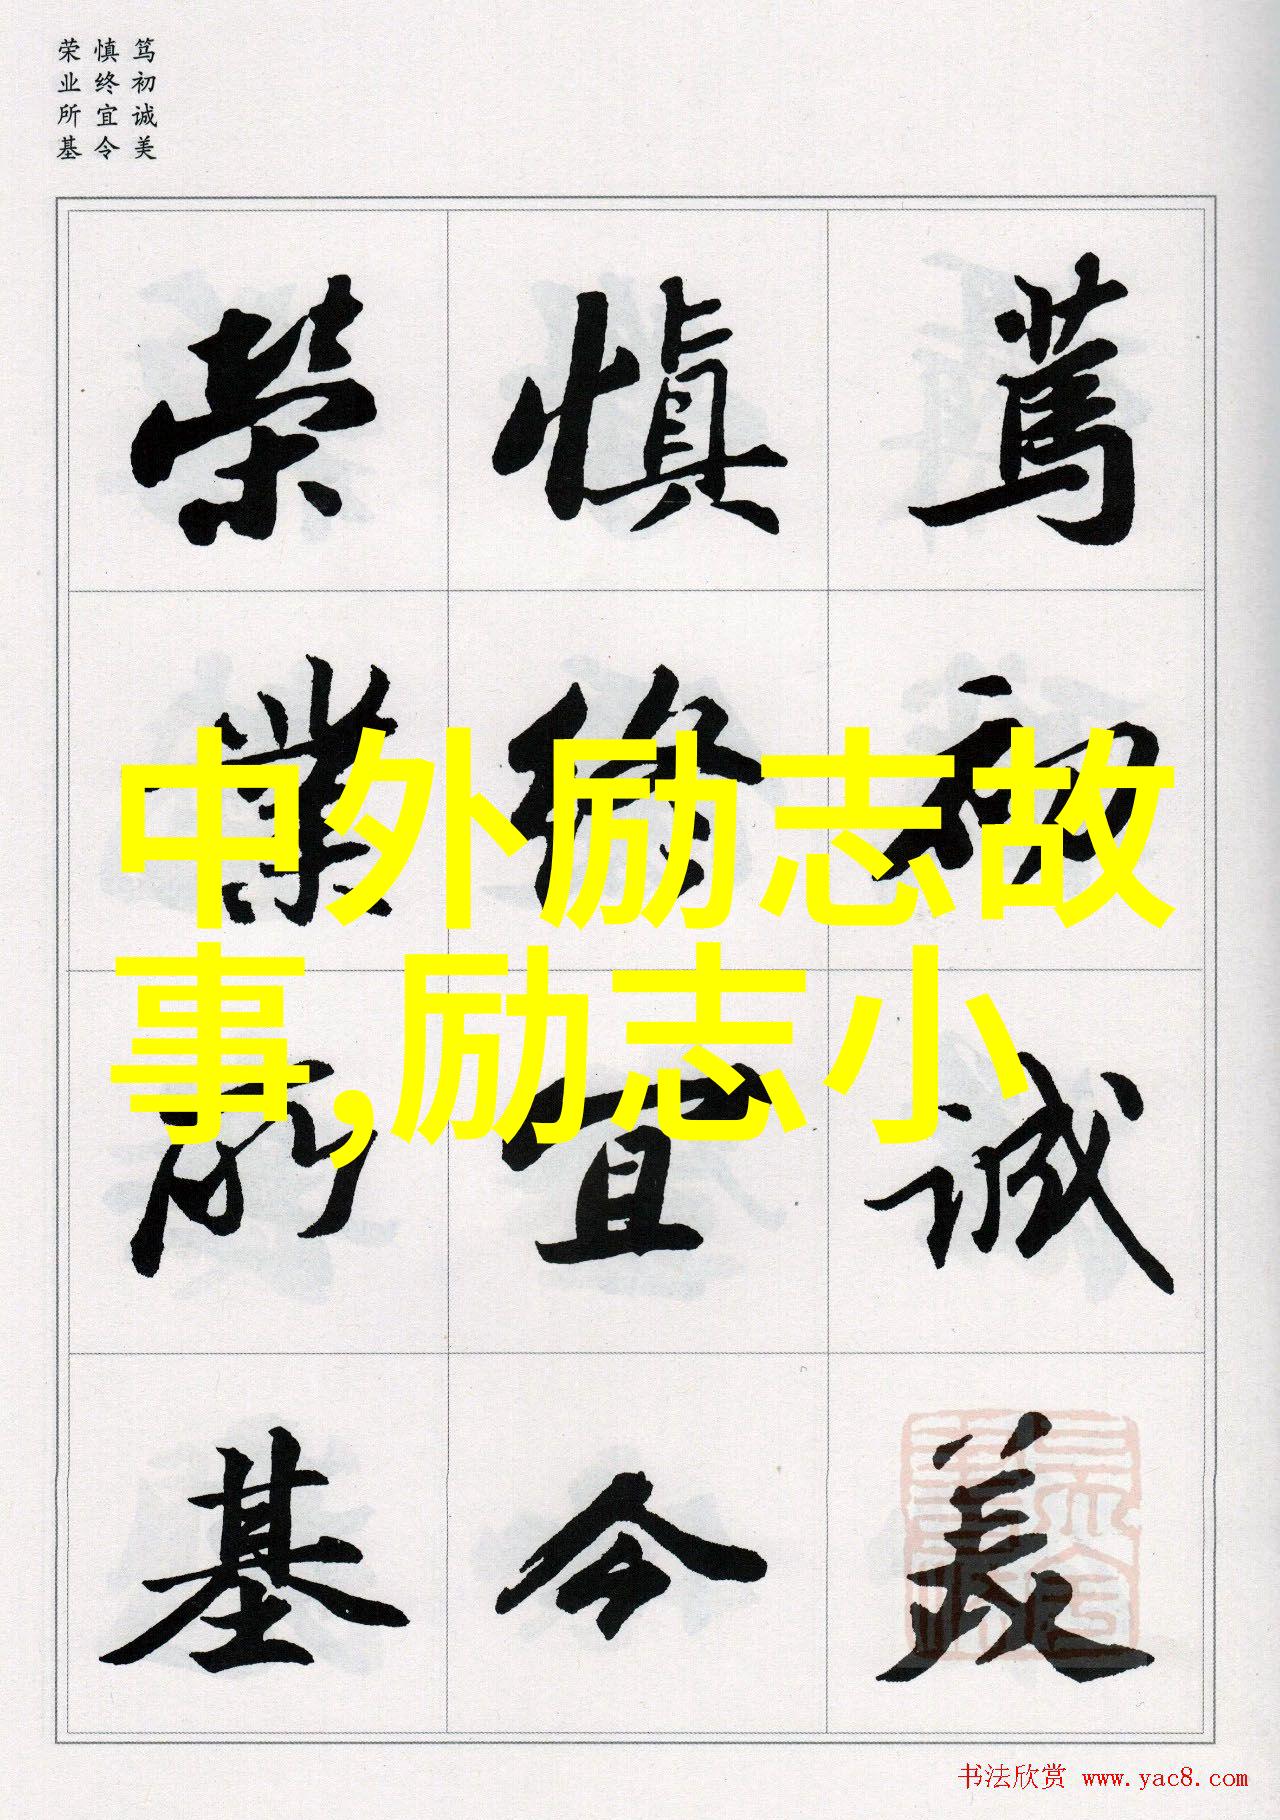 笃初诚美
慎终宜令
荣业所基
篤初诚美
慎终宜令
榮業所基
中外励志故
事,励志小
书法欣赏 www.yac8.com